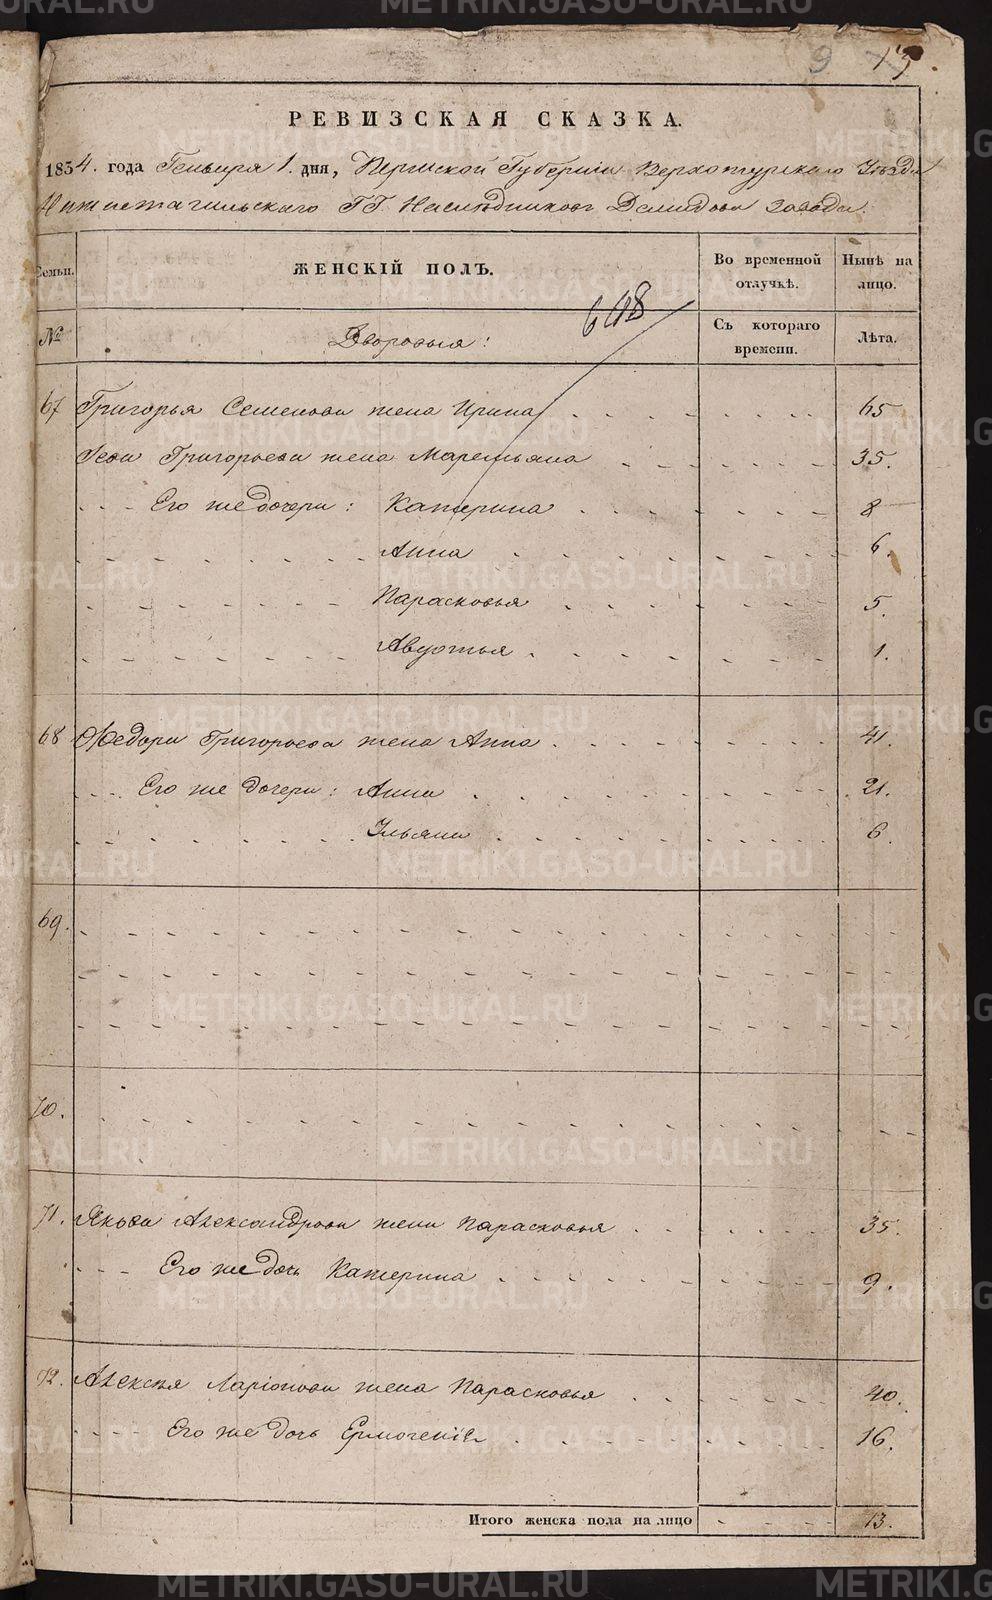 9 15
РЕВИЗСКАЯ СКАЗКА.
1834. года Генваря 1. дня, Пермской Губерніи Верхотурскаго Уѣзда
Нижнетагильскаго ГГ. Наслѣдниковъ Демидова завода.
Семьи. ЖЕНСКІЙ ПОЛЪ. Во временной отлучкѣ. Нынѣ на лицо.
№ Дворовыя: Съ котораго времени. Лѣта.
67 Григорья Семенова жена Ирина 65
Григорьева жена Маремьяна 35.
Его же дочери: Катерина 8
Анна 6.
Парасковья 5.
Авдотья 1.
68 Федора Григорьева жена Анна 41.
Его же дочери: Анна 21.
Ульяна 6.
69.
70.
71. Якова Александрова жена Парасковья 35.
Его же дочь Катерина 9.
72. Алексѣя Ларіонова жена Парасковья 40.
Его же дочь Ермогенія 16.
Итого женска пола на лицо 13.
METRIKI.GASO-URAL.RU